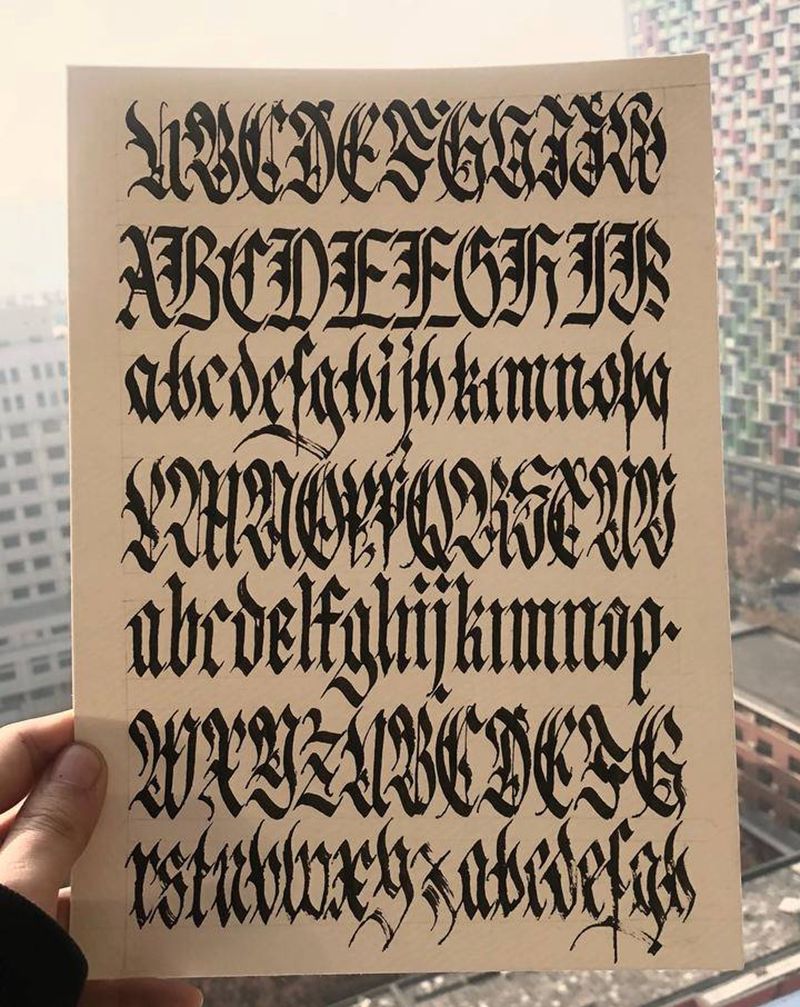 ABCDEFGHIJK
ABCDEFGHIJK
abcdefghijhklmnopq
LMNOPPQRSTUV
abcdeffghijklmnop.
WXYZABCDEFG
rstuvwxyzabcdefgh